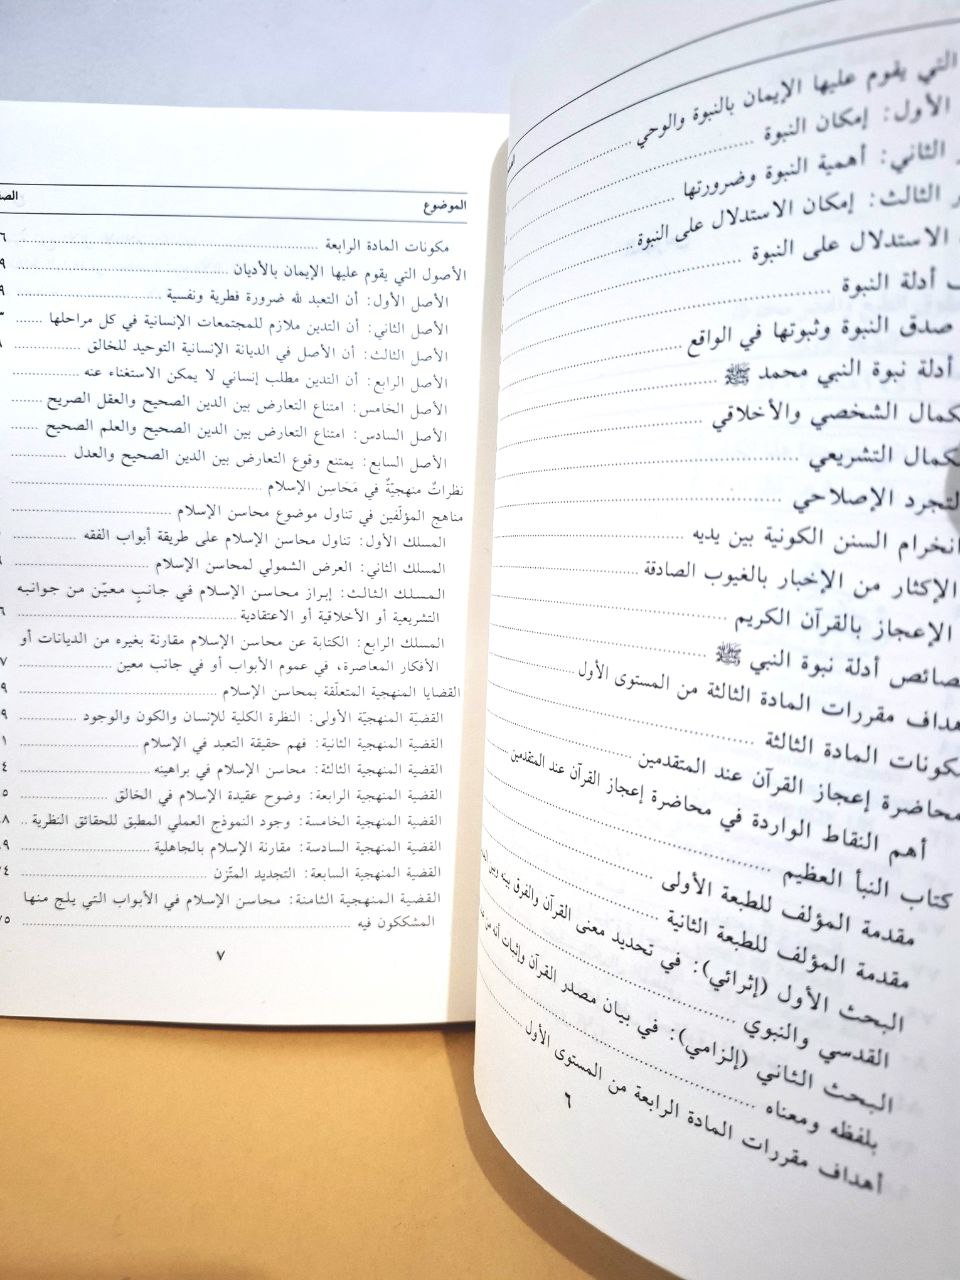 التي يقوم عليها الإيمان بالنبوة والوحي
الأول: إمكان النبوة
الثاني: أهمية النبوة وضرورتها
الثالث: إمكان الاستدلال على النبوة
الاستدلال على النبوة
أدلة النبوة
صدق النبوة وثبوتها في الواقع
أدلة نبوة النبي محمد ﷺ
كمال الشخصي والأخلاقي
كمال التشريعي
لتجرد الإصلاحي
انخرام السنن الكونية بين يديه
الإكثار من الإخبار بالغيوب الصادقة
الإعجاز بالقرآن الكريم
صائص أدلة نبوة النبي ﷺ
هداف مقررات المادة الثالثة من المستوى الأول
كونات المادة الثالثة
محاضرة إعجاز القرآن عند المتقدمين
أهم النقاط الواردة في محاضرة إعجاز القرآن عند المتقدمين
كتاب النبأ العظيم
مقدمة المؤلف للطبعة الأولى
مقدمة المؤلف للطبعة الثانية
البحث الأول (إثرائي): في تحديد معنى القرآن والفرق بينه وبين
القدسي والنبوي
البحث الثاني (إلزامي): في بيان مصدر القرآن وإثبات أنه من
بلفظه ومعناه
أهداف مقررات المادة الرابعة من المستوى الأول
٦
الموضوع الصف
مكونات المادة الرابعة ٦
الأصول التي يقوم عليها الإيمان بالأديان ٩
الأصل الأول: أن التعبد لله ضرورة فطرية ونفسية ٩
الأصل الثاني: أن التدين ملازم للمجتمعات الإنسانية في كل مراحلها ٣
الأصل الثالث: أن الأصل في الديانة الإنسانية التوحيد للخالق
الأصل الرابع: أن التدين مطلب إنساني لا يمكن الاستغناء عنه
الأصل الخامس: امتناع التعارض بين الدين الصحيح والعقل الصريح
الأصل السادس: امتناع التعارض بين الدين الصحيح والعلم الصحيح
الأصل السابع: يمتنع وقوع التعارض بين الدين الصحيح والعدل
نظراتٌ منهجيّةٌ في مَحَاسِن الإسلام
مناهج المؤلّفين في تناول موضوع محاسن الإسلام
المسلك الأول: تناول محاسن الإسلام على طريقة أبواب الفقه
المسلك الثاني: العرض الشمولي لمحاسن الإسلام
المسلك الثالث: إبراز محاسن الإسلام في جانبٍ معيّن من جوانبه
التشريعية أو الأخلاقية أو الاعتقادية ٦
المسلك الرابع: الكتابة عن محاسن الإسلام مقارنة بغيره من الديانات أو
الأفكار المعاصرة، في عموم الأبواب أو في جانب معين ٧
القضايا المنهجية المتعلّقة بمحاسن الإسلام ٩
القضيّة المنهجيّة الأولى: النظرة الكلية للإنسان والكون والوجود ٩
القضية المنهجية الثانية: فهم حقيقة التعبد في الإسلام ١
القضية المنهجية الثالثة: محاسن الإسلام في براهينه ٤
القضية المنهجية الرابعة: وضوح عقيدة الإسلام في الخالق ٥
القضية المنهجية الخامسة: وجود النموذج العملي المطبق للحقائق النظرية ٨
القضية المنهجية السادسة: مقارنة الإسلام بالجاهلية ٩
القضية المنهجية السابعة: التجديد المتّزن ٧٤
القضية المنهجية الثامنة: محاسن الإسلام في الأبواب التي يلج منها
المشككون فيه ٧٥
٧